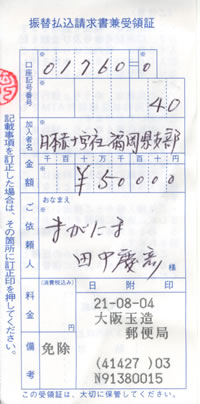 振替払込請求書兼受領証
口座記号番号
01760=0
40
加入者名
日本赤十字社福岡県支部
金額
千 百 十 万 千 百 十 円
¥50000
ご依頼人
おなまえ
まがたま
田中慶彦
様
料金
(消費税込み)
日附印
21-08-04
大阪玉造
郵便局
備考
免除
(41427)03
N91380015
記載事項を訂正した場合は、その箇所に訂正印を押してください。
この受領証は、大切に保管してください。